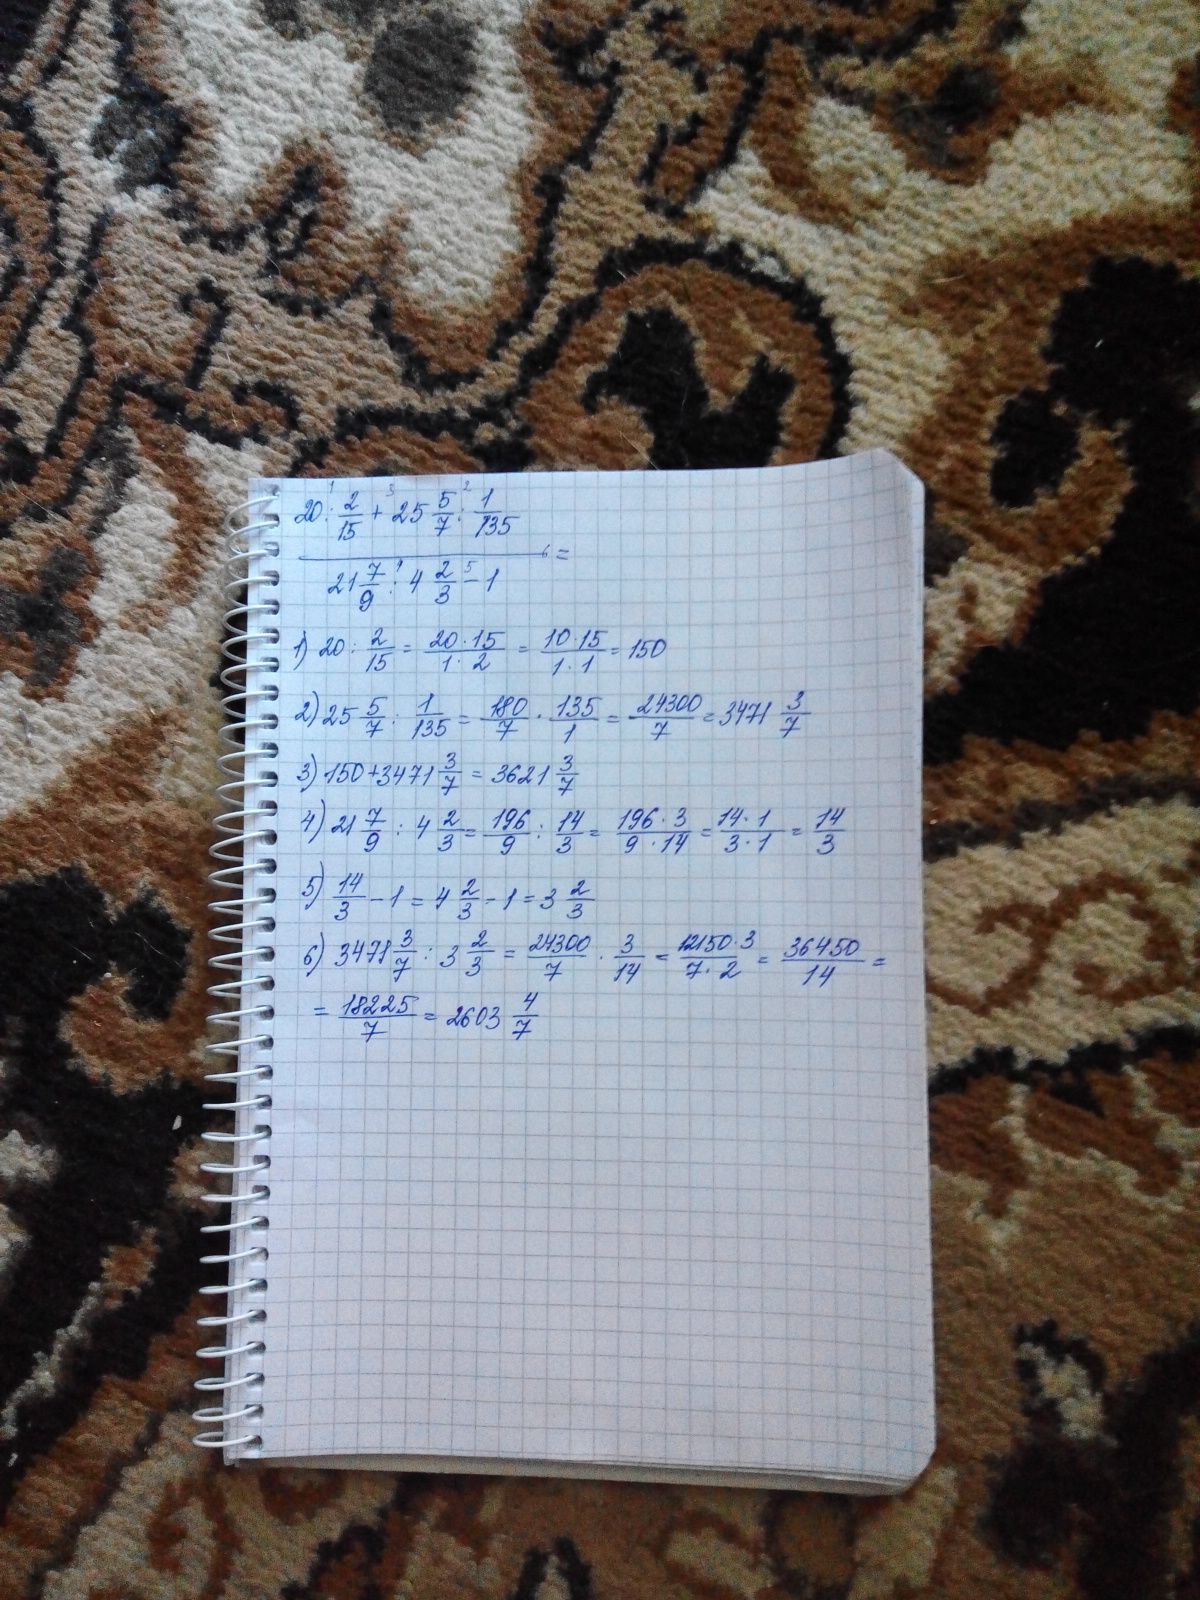 20 : 2/15 + 25 5/7 : 1/135
21 7/9 : 4 2/3 - 1 =
1) 20 : 2/15 = 20·15/1·2 = 10·15/1·1 = 150
2) 25 5/7 : 1/135 = 180/7 · 135/1 = 24300/7 = 3471 3/7
3) 150 + 3471 3/7 = 3621 3/7
4) 21 7/9 : 4 2/3 = 196/9 : 14/3 = 196·3/9·14 = 14·1/3·1 = 14/3
5) 14/3 - 1 = 4 2/3 - 1 = 3 2/3
6) 3471 3/7 : 3 2/3 = 24300/7 · 3/14 = 12150·3/7·2 = 36450/14 =
= 18225/7 = 2603 4/7